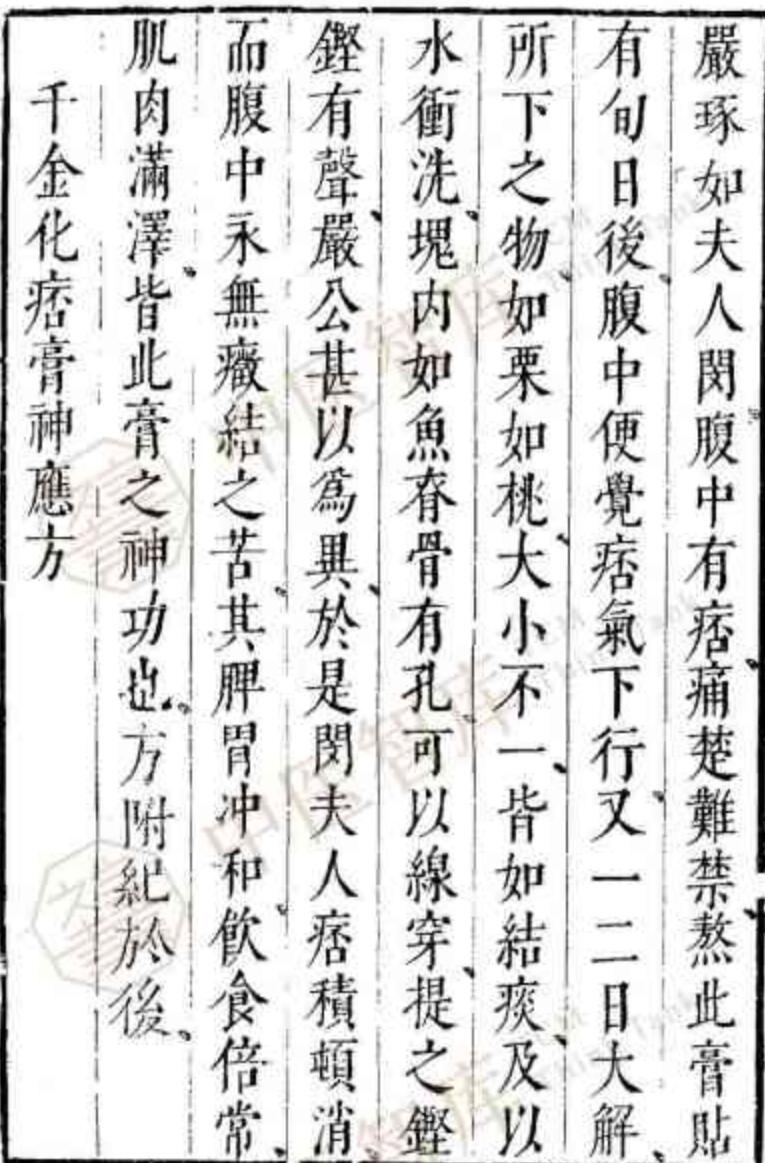 嚴琢如夫人閔腹中有痞痛楚難禁熬此膏貼
有旬日後腹中便覺痞氣下行又一二日大解
所下之物如栗如桃大小不一皆如結痰及以
水衝洗塊内如魚脊骨有孔可以線穿提之鏗
鏗有聲嚴公甚以爲異於是閔夫人痞積頓消
而腹中永無癥結之苦其脾胃冲和飲食倍常
肌肉滿澤皆此膏之神功也方附紀於後
千金化痞膏神應方
中医智库
中医智库